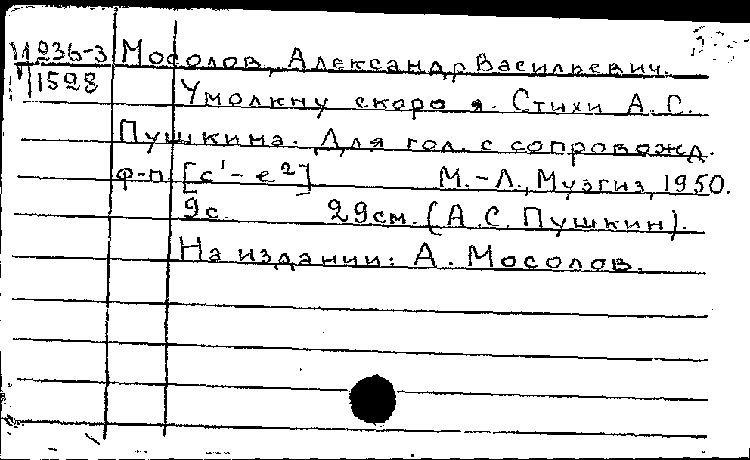 М 236-3 Мосолов, Александр Васильевич.
П 1528 Умолкну скоро я. Стихи А.С.
Пушкина. Для гол. с сопровожд.
ф-п. [c¹ - e²] М.-Л., Музгиз, 1950.
9с. 29см. (А.С. Пушкин).
На издании: А. Мосолов.